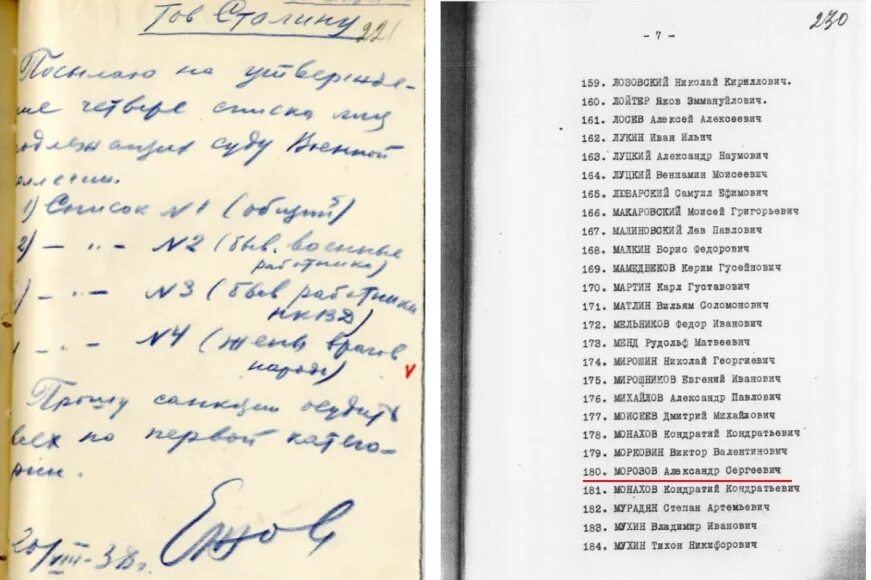 Тов Сталину
221
Посылаю на утвержде-
ние четыре списка лиц
подлежащих суду Военной
коллегии.
1) Список №1 (общий)
2) – " – №2 (быв. военные
работники)
) – " – №3 (быв работники
НКВД)
) – " – №4 (жены врагов
народа)
V
Прошу санкции осудить
всех по первой катего-
рии.
Ежов
20/VIII-38г.
230
- 7 -
159. ЛОЗОВСКИЙ Николай Кириллович.
160. ЛОЙТЕР Яков Эммануйлович.
161. ЛОСЕВ Алексей Алексеевич
162. ЛУКИН Иван Ильич
163. ЛУЦКИЙ Александр Наумович
164. ЛУЦКИЙ Вениамин Моисеевич
165. ЛЮБАРСКИЙ Самуил Ефимович
166. МАКАРОВСКИЙ Моисей Григорьевич
167. МАЛИНОВСКИЙ Лев Павлович
168. МАЛКИН Борис Федорович
169. МАМЕДБЕКОВ Керим Гусейнович
170. МАРТИН Карл Густавович
171. МАТЛИН Вильям Соломонович
172. МЕЛЬНИКОВ Федор Иванович
173. МЕНД Рудольф Матвеевич
174. МИРОШИН Николай Георгиевич
175. МИРОШНИКОВ Евгений Иванович
176. МИХАЙЛОВ Александр Павлович
177. МОИСЕЕВ Дмитрий Михайлович
178. МОНАХОВ Кондратий Кондратьевич
179. МОРКОВИН Виктор Валентинович
180. МОРОЗОВ Александр Сергеевич
181. МОНАХОВ Кондратий Кондратьевич
182. МУРАДЯН Степан Артемьевич
183. МУХИН Владимир Иванович
184. МУХИН Тихон Никифорович